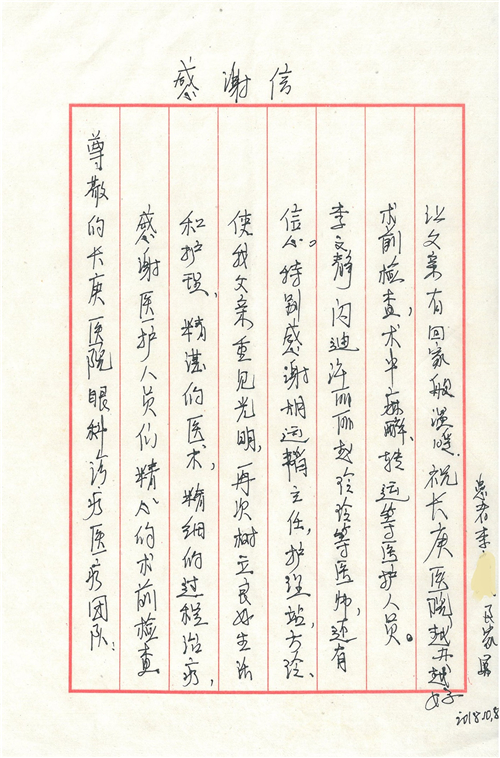 感谢信
尊敬的长庚医院眼科诊疗医疗团队：
感谢医护人员们精心的术前检查
和护理，精湛的医术，精细的过程治疗，
使我父亲重见光明，再次树立良好生活
信心。特别感谢胡运韬主任，护理站方玲、
李文静 闪迪 许丽丽 赵玲玲等医师，还有
术前检查，术中麻醉、转运等医护人员。
让父亲有回家般温暖。祝长庚医院越办越好
患者李
及家属
2018.10.8